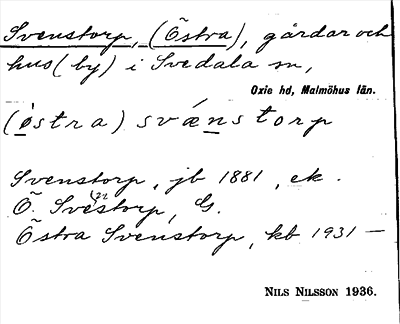 Svenstorp, (Östra), gårdar och
hus (by) i Svedala sn,
Oxie hd, Malmöhus län.
(östra) svænstorp
Svenstorp, jb 1881, ek.
Ö. Svenstorp, G.
Östra Svenstorp, kb 1931 —
NILS NILSSON 1936.